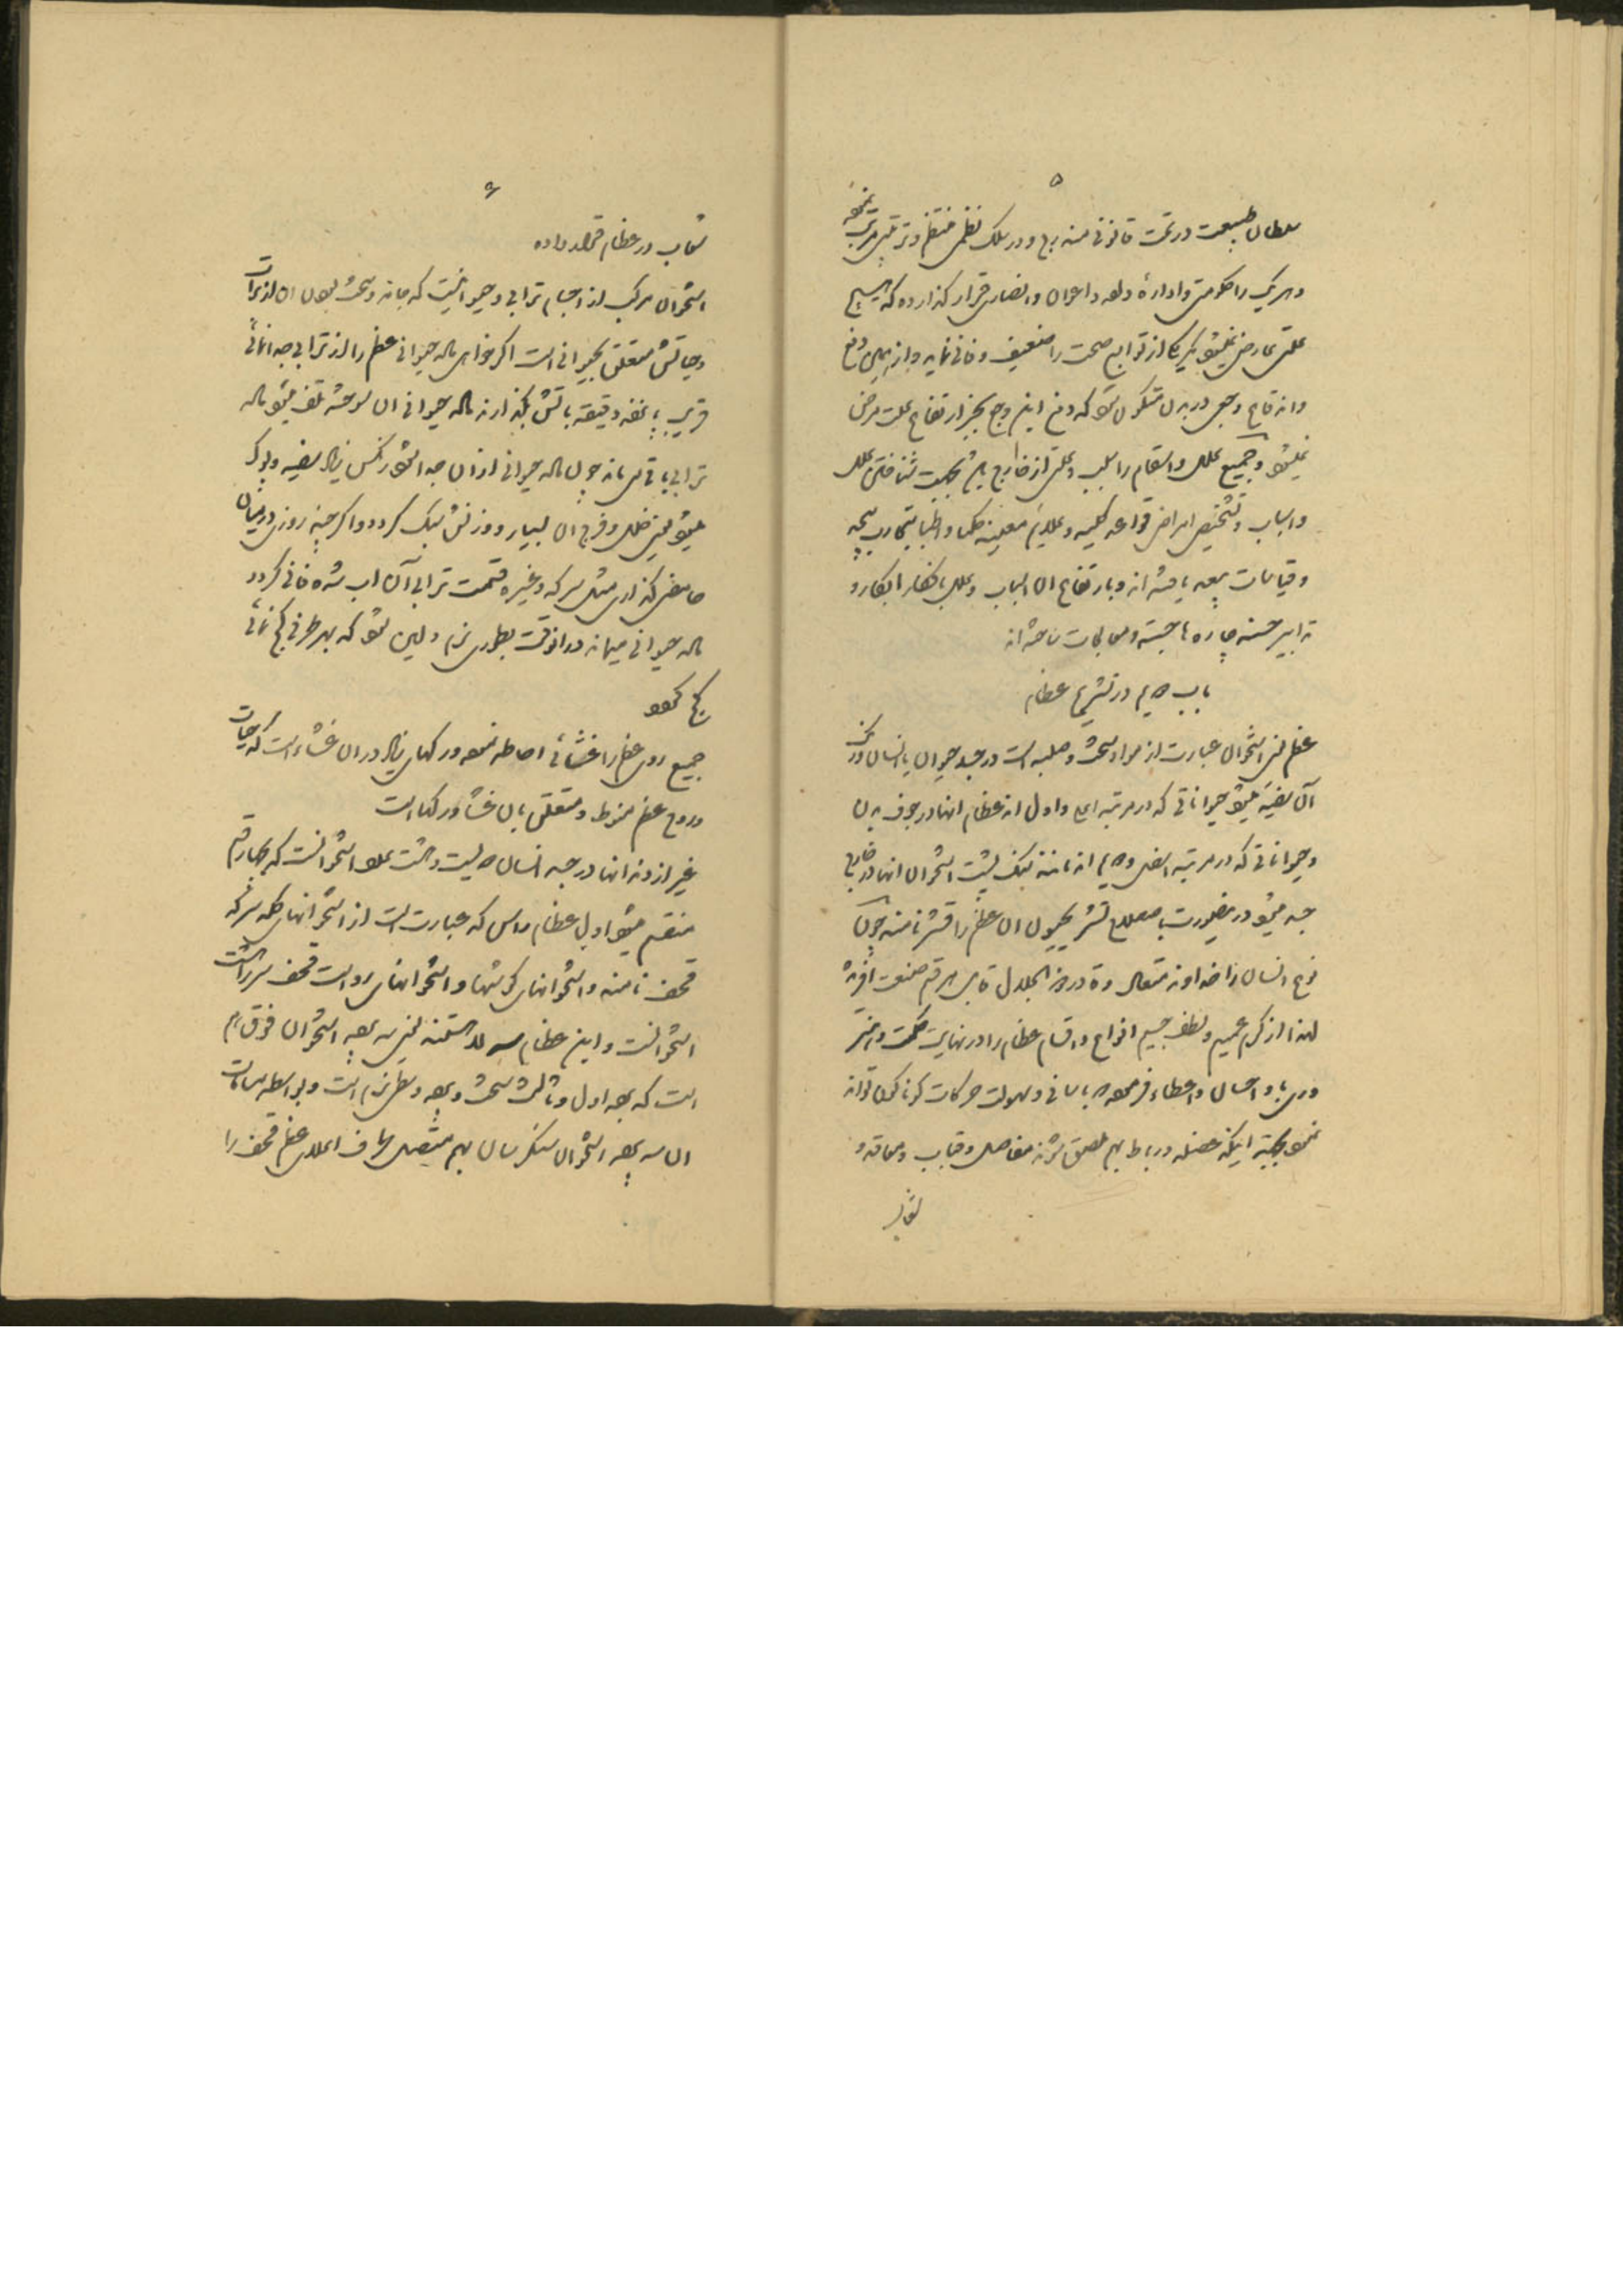 ۵
سلطان طبیعت در تحت قانونی مندرج و در سلک نظمی منتظم و ترتیبی مرتب نموده
و هر یک را حکومتی و اداره داده و اعوان و انصاری قرار گذارده که هیچ
علتی عارض نمیشود مگر یکی از توابع صحت را ضعیف و فانی نماید و از
و وجعی در بدن متکون شود که دفع این وجع بجز ارتفاع علت مرض
نمیشود و جمیع علل و اسقام را سبب و علتی از خارج بجهت شناختن علل
و اسباب و تشخیص امراض قواعد کلیه و علایم معینه حکما و اطبا بتجارب
و قیاسات یافته اند و بارتفاع ان اسباب و علل بافکار ابکار و
تدابیر حسنه چاره ها جسته و معالجات ساخته اند
باب دویم در تشریح عظام
عظم یعنی استخوان عبارت از مواد سخت و صلبه است در جسد حیوان یا انسان و رنگ
آن سفید میشود حیواناتی که در مرتبه اعلی و اول اند عظام انها در جوف بدن
و حیواناتی که در مرتبه اسفل و دویم اند مانند سنگ پشت استخوان انها در خارج
جسد میشود در اینصورت باصطلاح تشریحیون ان عظم را قشر نامند چون
نوع انسان را خداوند متعال و قادر ذو الجلال قابل هر قسم صنعت آفریده
لهذا از کرم عمیم و لطف جسیم انواع و اقسام عظام را در نهایت حکمت و
و احسان و اعطاء فرموده باسانی و سهولت حرکات گوناگون تواند
نمود بجهت اینکه عضله و رباط بهم ملصق شوند مفاصل و
۶
در عظام قرار داده
استخوان مرکب از اجسام ترابی و حیوانیست که ماده و سخت بودن ان از تراب
و حیاتش متعلق بحیوانی است اگر خواهی ماده حیوانی عظم را از ترابی جدا نمائی
قریب پانزده دقیقه باتش بگذارند ماده حیوانی ان سوخته تلف میشود ماده
ترابی باقی میماند چون ماده حیوانی از ان جدا شود رنگش زیاد سفید و پوک
میشود یعنی خلل و فرج ان بسیار و وزنش سبک گردد و اگر چند روزی در میان
حامضی گذاری مثل سرکه و غیره قسمت ترابی آن اب شده فانی گردد
ماده حیوانی میماند در انوقت بطوری نرم و لین شود که بهر طرفی کج نمائی
کج گردد
جمیع روی عظم را غشائی احاطه نموده و رگهای زیاد در ان غشاء است که حیات
و روح عظم منوط و متعلق بان غشا و رگها است
غیر از دندانها در جسد انسان دویست و هشت عدد استخوانست که بچهار قسم
منقسم میشود اول عظام راس که عبارت است از استخوانهای کله سر که
قحف نامند و استخوانهای گوشها و استخوانهای رو است قحف سر را هشت
استخوانست و این عظام سه لا هستند یعنی سه پرده استخوان فوق هم
است که پرده اول و ثالث سخت و پرده وسطی نرم است و بواسطه مسامات
ان سه پرده استخوان یکسان بهم متصل اطراف اعلای عظم قحف را